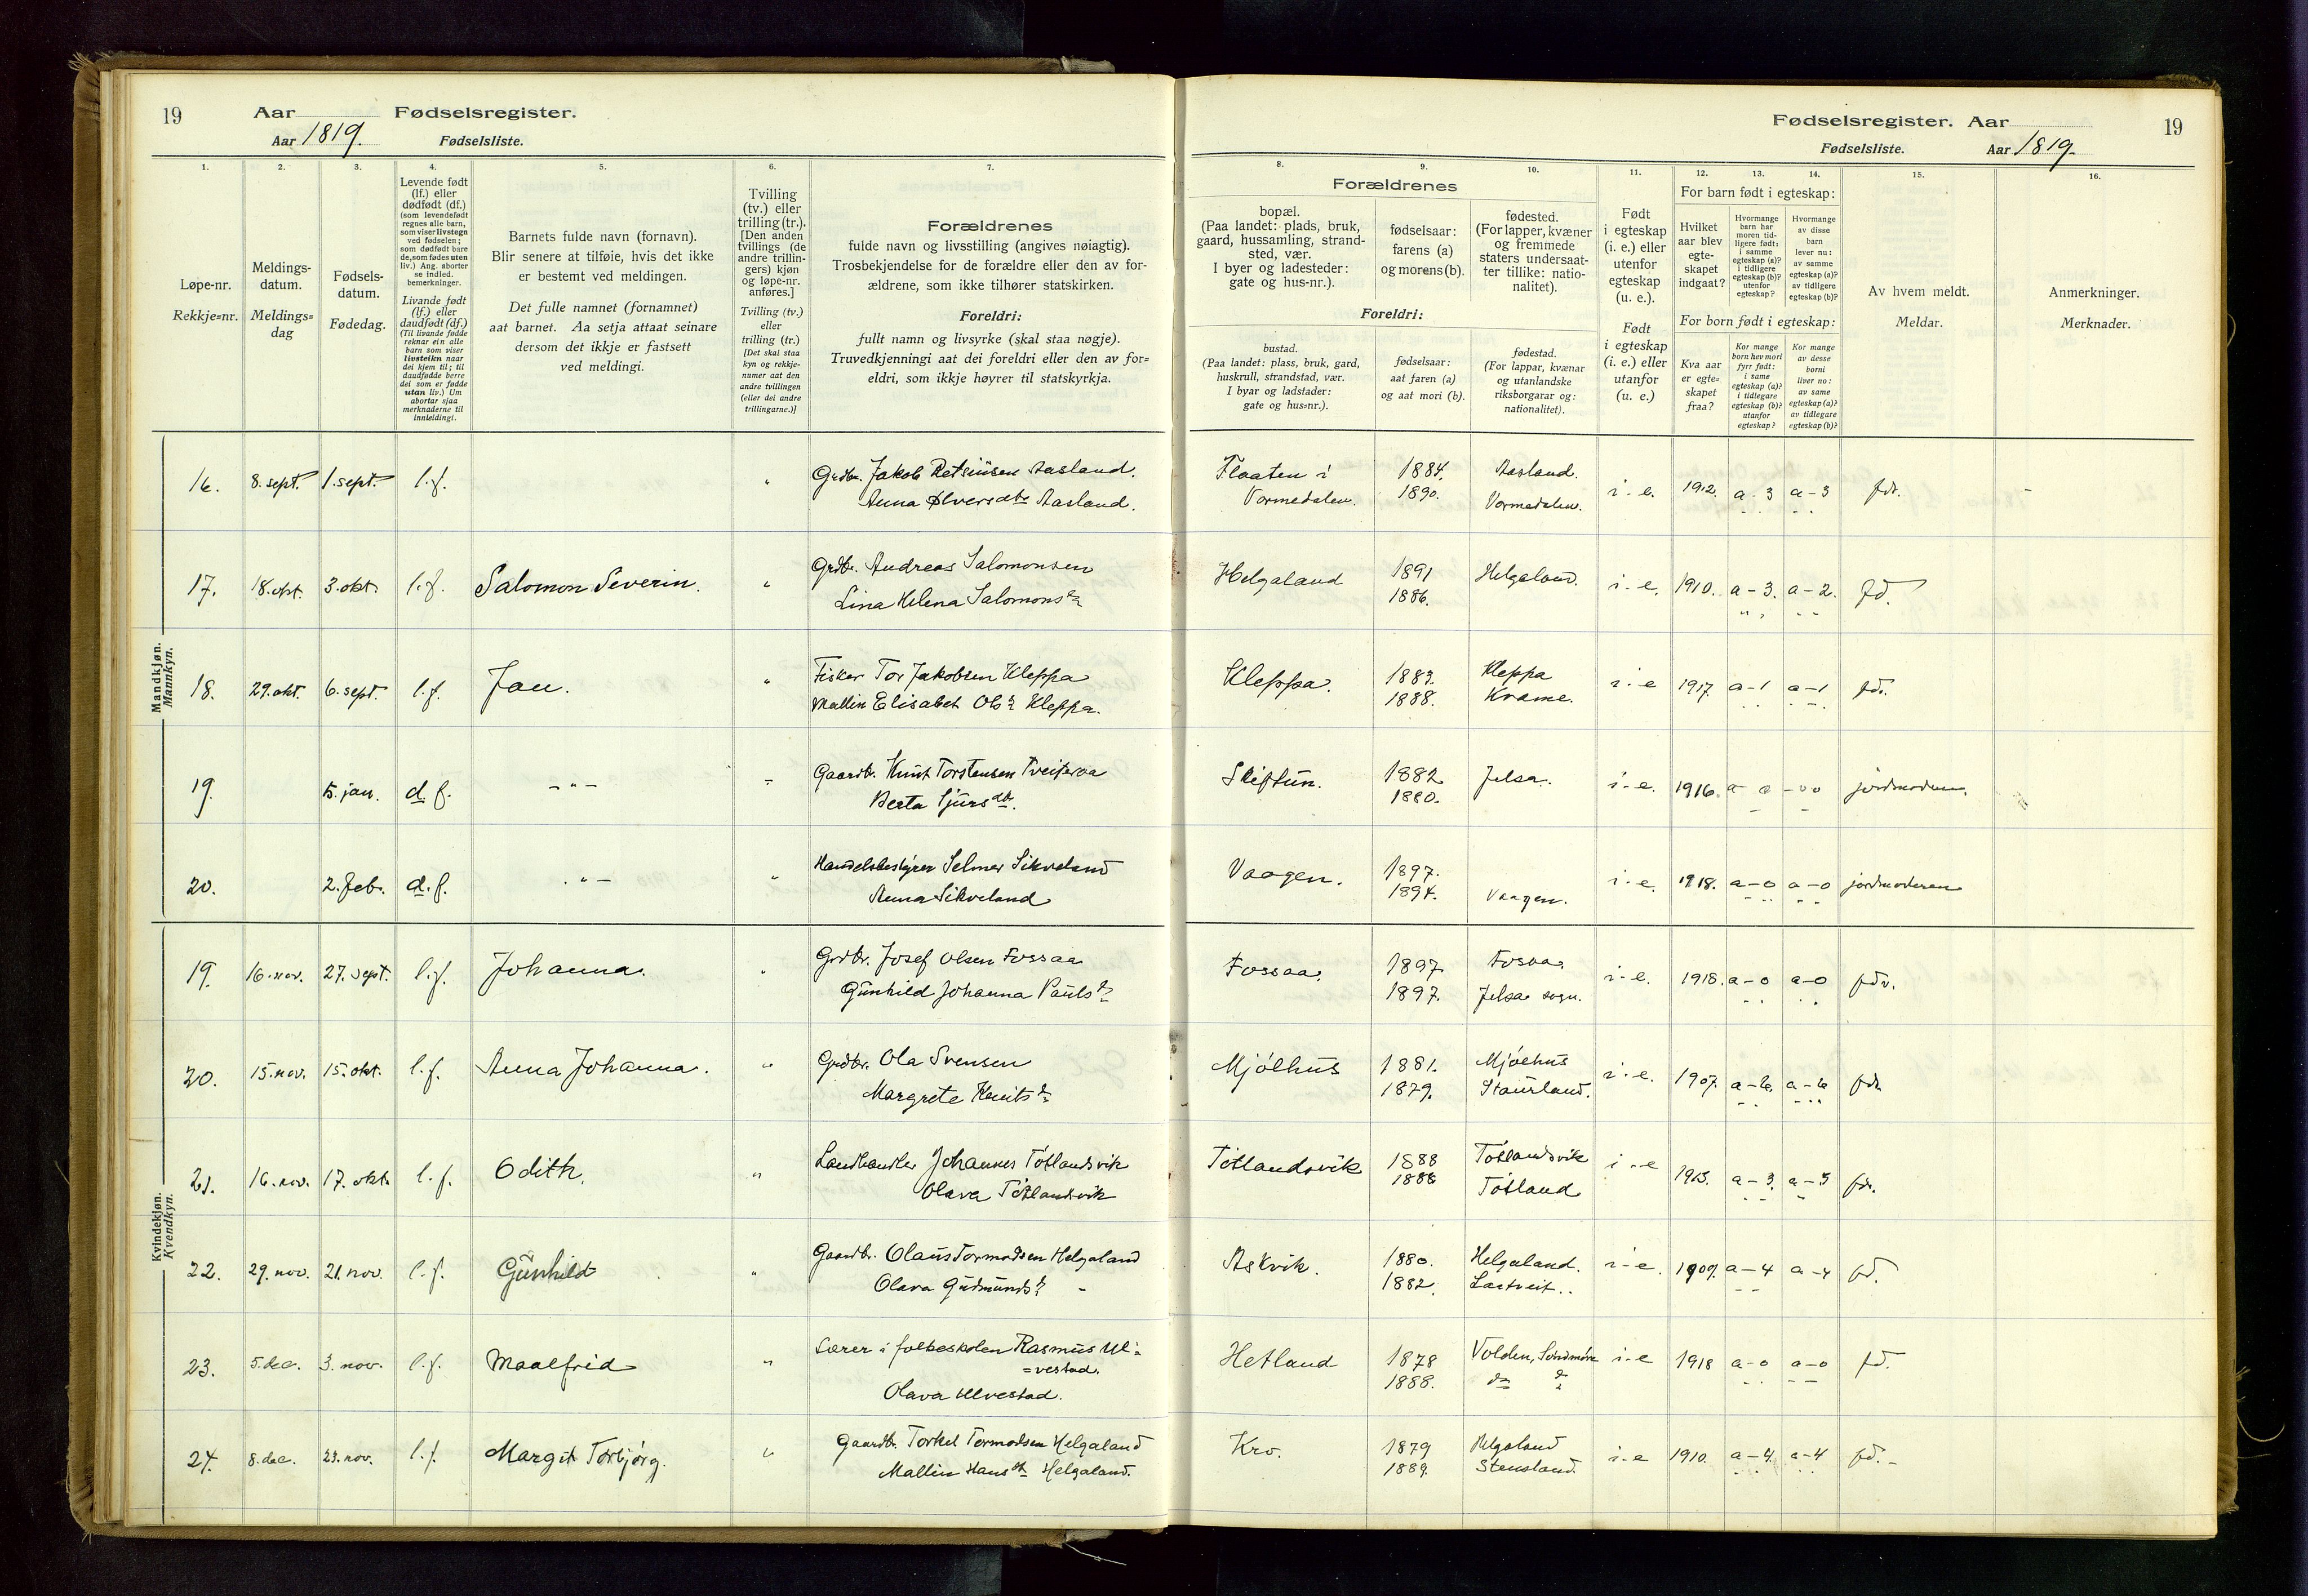 19 Aar Fødselsregister.
Aar 1819. Fødselsliste.
Fødselsregister. Aar 19
Fødselsliste. Aar 1819.
1. 2. 3. 4. 5. 6. 7. 8. 9. 10. 11. 12. 13. 14. 15. 16.
Løpe-nr.
Rekkje=nr.
Meldings-
datum.
Meldings=
dag
Fødsels-
datum.
Fødedag.
Levende født
(lf.) eller
dødfødt (df.)
(som levendefødt
regnes alle barn,
som viser livstegn
ved fødselen;
som dødfødt bare
de, som fødes uten
liv.) Ang. aborter
se indled.
bemerkninger.
Livande født
(lf.) eller
daudfødt (df.)
(Til livande fødde
reknar ein alle
barn som viser
livsteikn naar
dei kjem til; til
daudfødde berre
dei som er fødde
utan liv.) Um
abortar sjaa
merknaderne til
innleidingi.
Barnets fulde navn (fornavn).
Blir senere at tilføie, hvis det ikke
er bestemt ved meldingen.
Det fulle namnet (fornamnet)
aat barnet. Aa setja attaat seinare
dersom det ikkje er fastsett
ved meldingi.
Tvilling
(tv.) eller
trilling (tr.).
[Den anden
tvillings (de
andre trillin-
gers) kjøn
og løpe-nr.
anføres.]
Tvilling (tv.)
eller
trilling (tr.)
[Det skal staa
kyn og rekkje-
numer aat den
andre tvillingen
(eller dei andre
trillingarne.)]
Forældrenes
fulde navn og livsstilling (angives nøiagtig).
Trosbekjendelse for de forældre eller den av for-
ældrene, som ikke tilhører statskirken.
Foreldri:
fullt namn og livsyrke (skal staa nøgje).
Truvedkjenningi aat dei foreldri eller den av for=
eldri, som ikkje høyrer til statskyrkja.
Forældrenes
bopæl.
(Paa landet: plads, bruk,
gaard, hussamling, strand-
sted, vær.
I byer og ladesteder:
gate og hus-nr.).
fødselsaar:
farens (a)
og morens (b).
fødested.
(For lapper, kvæner
og fremmede
staters undersaat-
ter tillike: natio-
nalitet).
Foreldri:
bustad.
(Paa landet: plass, bruk, gard,
huskrull, strandstad, vær.
I byar og ladstader:
gate og hus=nr.).
fødselsaar:
aat faren (a)
og aat mori (b).
fødestad.
(For lappar, kvænar
og utanlandske
riksborgarar og:
nationalitet).
Født
i egteskap
(i. e.) eller
utenfor
egteskap
(u. e.).
Født
i egteskap
(i. e.) eller
utanfor
(u. e.)
For barn født i egteskap:
Hvilket
aar blev
egte-
skapet
indgaat?
Hvormange
barn har
moren tid-
ligere født:
i samme
egteskap (a)?
i tidligere
egteskap (b)?
utenfor
egteskap?
Hvormange
av disse
barn
lever nu:
av samme
egteskap (a)?
av tidligere
egteskap (b)?
For born født i egteskap:
Kva aar
er egte=
skapet
fraa?
Kor mange
born hev mori
fyrr født:
i same
egteskap (a)?
i tidlegare
egteskap (b)?
utanfor
egteskap?
Kor mange
av desse
borni
liver no:
av same
egteskap (a)?
av tidlegare
egteskap (b)?
Av hvem meldt.
Meldar.
Anmerkninger.
Merknader.
Mandkjøn.
Mannkyn.
16. 8. sept. 1. sept. l.f. " Grdbr. Jakob Aasland. Flaaten i 1884. Aasland. i-e. 1912. a-3 a-3 fdr.
Anna Aasland. Vormedalen. 1890. Vormedalen.
17. 18. okt. 3. okt. l.f. Salomon Severin. " Grdbr. Andreas Salomonsen Helgaland 1891 Helgaland. i-e. 1910. a-3. a-2. fd.
Lina Helena Salomonsdr 1886.
18. 29. okt. 6. sept. l.f. Jan. " Fisker Tor Jakobsen Kleppa Kleppa. Kleppa i-e 1917. a-1 a-1 fdr.
Mallin Elisabet Olsdr Kleppa. 1888. Kvame.
19. 5. jan. d.f. - " - Gaardbr. Knut Torstensen 1882. Jelsa. i-e. 1916. jordmoderen.
Berta Sjursdtr. 1880.
20. 2. Feb. d.f. - " - " Handelsbestyrer Selmer Sikveland Vaagen. 1897. i-e. 1918. a-0 a-0 jordmoderen
Anna Sikveland 1894. Vaagen.
Kvindekjøn.
Kvendkyn.
19. 16. nov. 27. sept. l.f. Johanna. " Grdbr. Josef Olsen Fossaa Fossaa. 1897 Fossaa. i-e. 1918. a-0 a-0 fdr.
Gunhild Johanna Paulsdr 1897. Jelsa sogn.
20. 15. nov. 15. okt. l.f. Anna Johanna. " Grdbr. Ola Svensen Mjölhus 1881. Mjölhus i-e. 1907. a-6. a-6 fdr.
Margrete Knutsdr 1879. Staurland.
21. 16. nov. 17. okt. l.f. Odith. " Landhandler Johannes Tötlandsvik Tötlandsvik 1888 Tötlandsvik i-e 1913. a-3. a-3 fdr.
Olava Tötlandsvik 1888 Tötland
22. 29. nov. 21. nov. l.f. Gunhild " Gaardbr. Olaus Tormodsen Helgaland Askvik. 1880. Helgaland. i-e. 1909. a-4 a-4 fd.
Olava Gudmundsdr - 1882.
23. 5. dec. 3. nov. l.f. Maalfrid " Lærer i folkeskolen Rasmus Ul= Hetland 1878 Volden, Søndmøre i-e 1918 a-0 a-0 fd.
=vestad.
Olava Ulvestad. 1888. do do
24. 8. dec. 23. nov. l.f. Margit Torbjørg. " Gaardbr. Torkel Tormodsen Helgaland Kro. 1879 Helgaland i-e 1910. a-4. a-4 fd. -
Mallin Hansdtr Helgaland. 1889. Stensland.